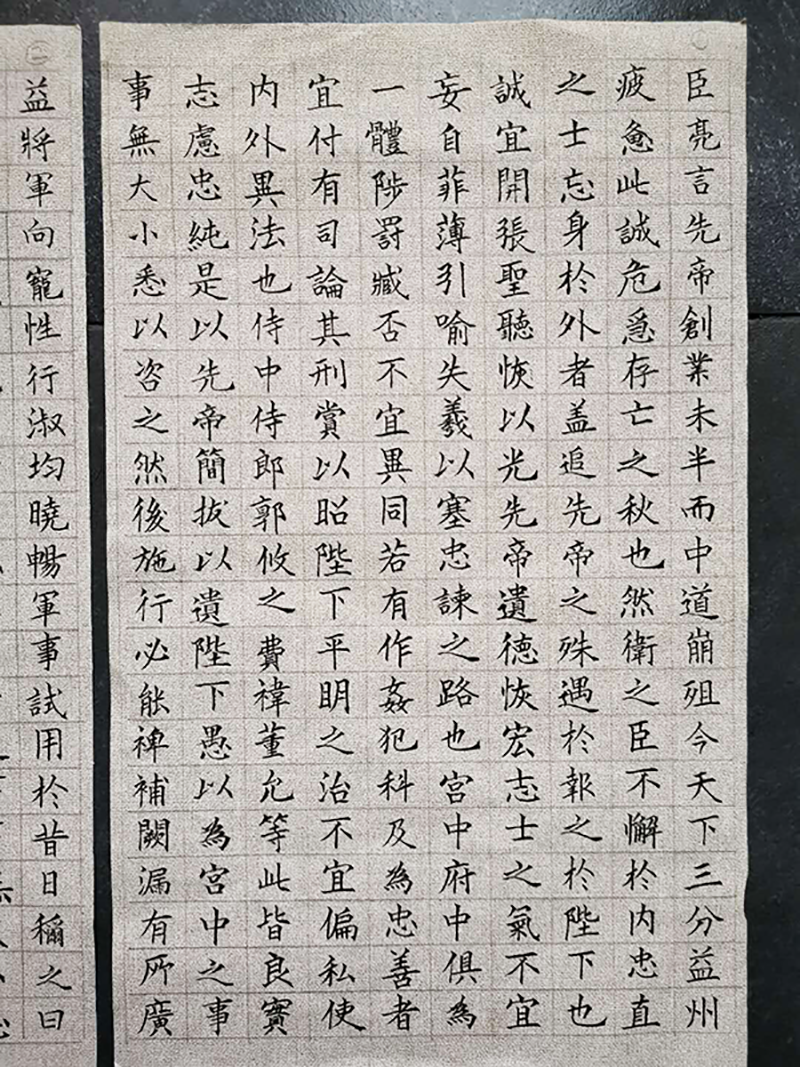 臣亮言先帝創業未半而中道崩殂今天下三分益州
疲惫此誠危急存亡之秋也然衛之臣不懈於内忠直
之士忘身於外者盖追先帝之殊遇於報之於陛下也
誠宜開張聖聽恢以光先帝遺德恢宏志士之氣不宜
妄自菲薄引喻失義以塞忠諫之路也宫中府中俱為
一體陟罰臧否不宜異同若有作姦犯科及為忠善者
宜付有司論其刑賞以昭陛下平明之治不宜偏私使
内外異法也侍中侍郎郭攸之費禕董允等此皆良實
志慮忠純是以先帝簡拔以遺陛下愚以為宫中之事
事無大小悉以咨之然後施行必能裨補闕漏有所廣
㊁
益將軍向寵性行淑均曉暢軍事試用於昔日稱之曰